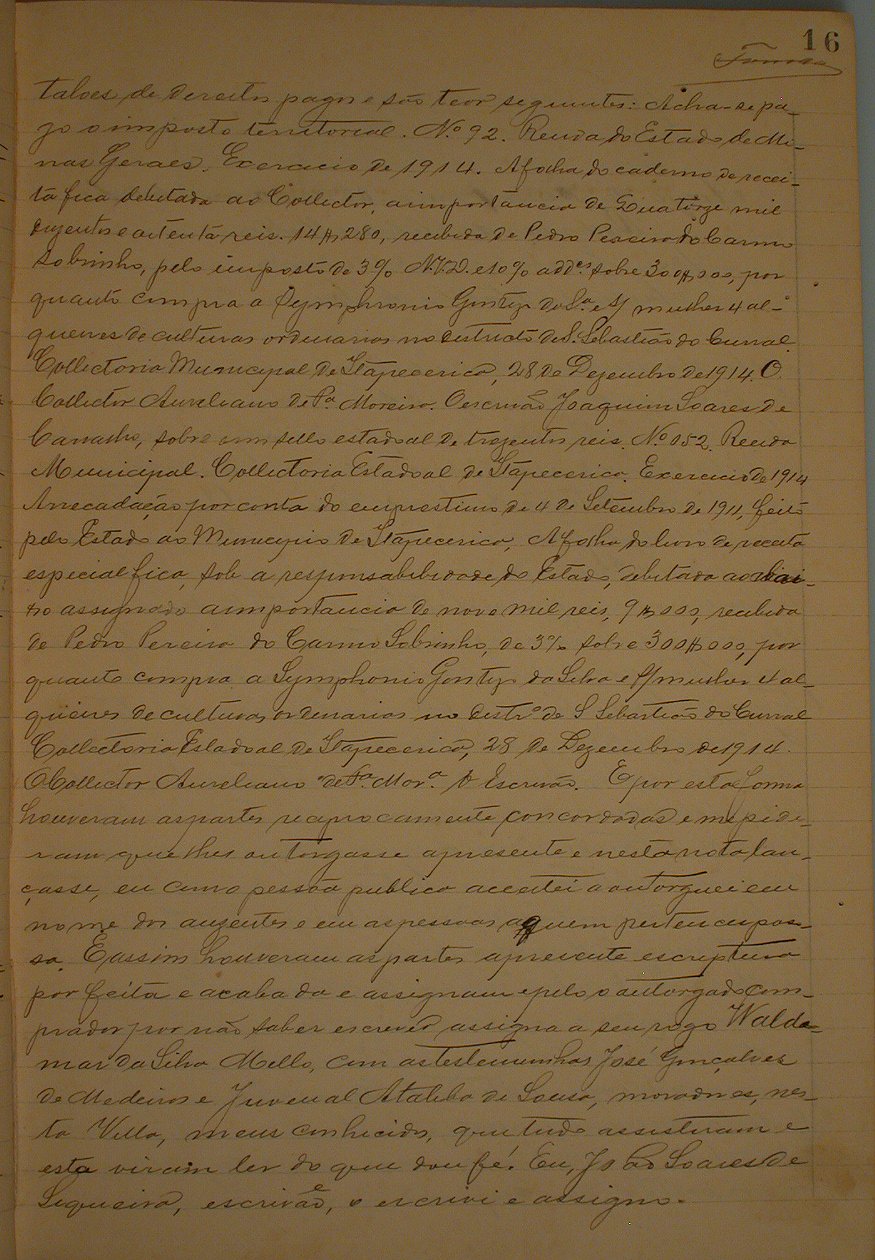 16
talões de direitos pagos e são teor seguintes: Acha-se pa-
go o imposto territorial. Nº 92. Renda do Estado de Mi-
nas Geraes. Exercicio de 1914. A folha do caderno de recei-
ta fica debitada ao Collector, a importancia de Quatorze mil
duzentos e oitenta reis. 14$280, recebida de Pedro Pereira do Carmo
Sobrinho, pelo imposto de 3% N.V.D. e 10% addes sobre 300$000, por
quanto compra a Symphronio Gontijo da Sª e s/ mulher 4 al-
queires de culturas ordenarios no districto de S. Sebastião do Curral.
Collectoria Municipal de Itapecerica, 28 de Dezembro de 1914. O
Collector Aureliano de Pª Moreira. O escrivão Joaquim Soares de
Camargo, sobre um sello estadoal de trezentos reis. Nº 052. Renda
Municipal. Collectoria Estadoal de Itapecerica. Exercicio de 1914
Arrecadação por conta do emprestimo de 4 de Setembro de 1911, feito
pelo Estado ao Municipio de Itapecerica, A folha do livro de receita
especial fica, sob a responsabilidade do Estado, debitada ao abai-
xo assignado a importancia de nove mil reis, 9$000, recebida
de Pedro Pereira do Carmo Sobrinho, de 3% sobre 300$000, por
quanto compra a Symphronio Gontijo da Silva e s/ mulher 4 al-
queires de culturas ordenarios no distrº de S Sebastião do Curral
Collectoria Estadoal de Itapecerica, 28 de Dezembro de 1914.
O Collector Aureliano de Pª Morª O Escrivão. E por esta forma
houveram as partes reciprocamente concordadas e me pide-
ram que lhes outorgasse a presente e nesta nota lan-
çasse, eu como pessôa publica acceitei a outorguei em
nome dos auzentes e em as pessoas a quem pertencer pos-
sa. E assim houveram as partes a presente escriptura
por feita e acabada e assignam e pelo o outorgado com-
prador por não saber escrever assigna a seu rogo Walde-
mar da Silva Mello, com as testemunhas José Gonçalves
de Medeiros e Juvenal Ataliba de Sousa, moradores, nes-
ta Villa, meus conhecidos, que tudo assistiram e
esta viram ler do que dou fé. Eu, João Soares de
Siqueira, escrivão, o escrivi e assigno.